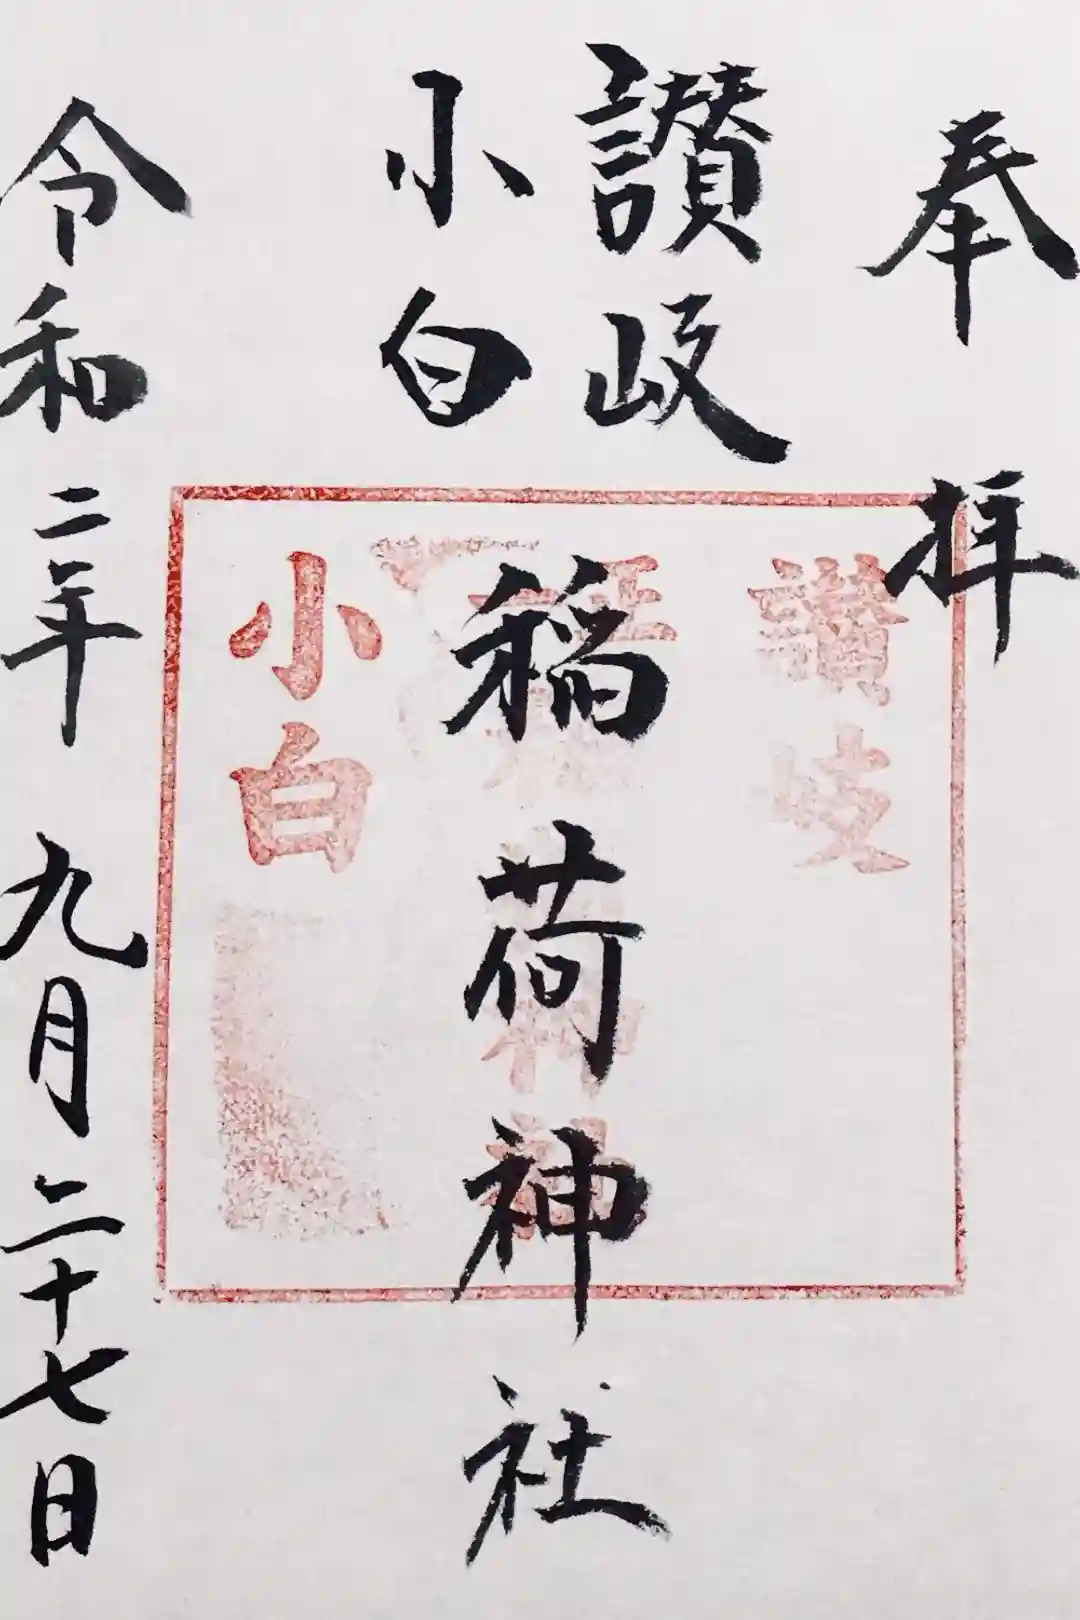 奉拝
讃岐
小白
稲荷神社
令和二年九月二十七日
讃岐
小白